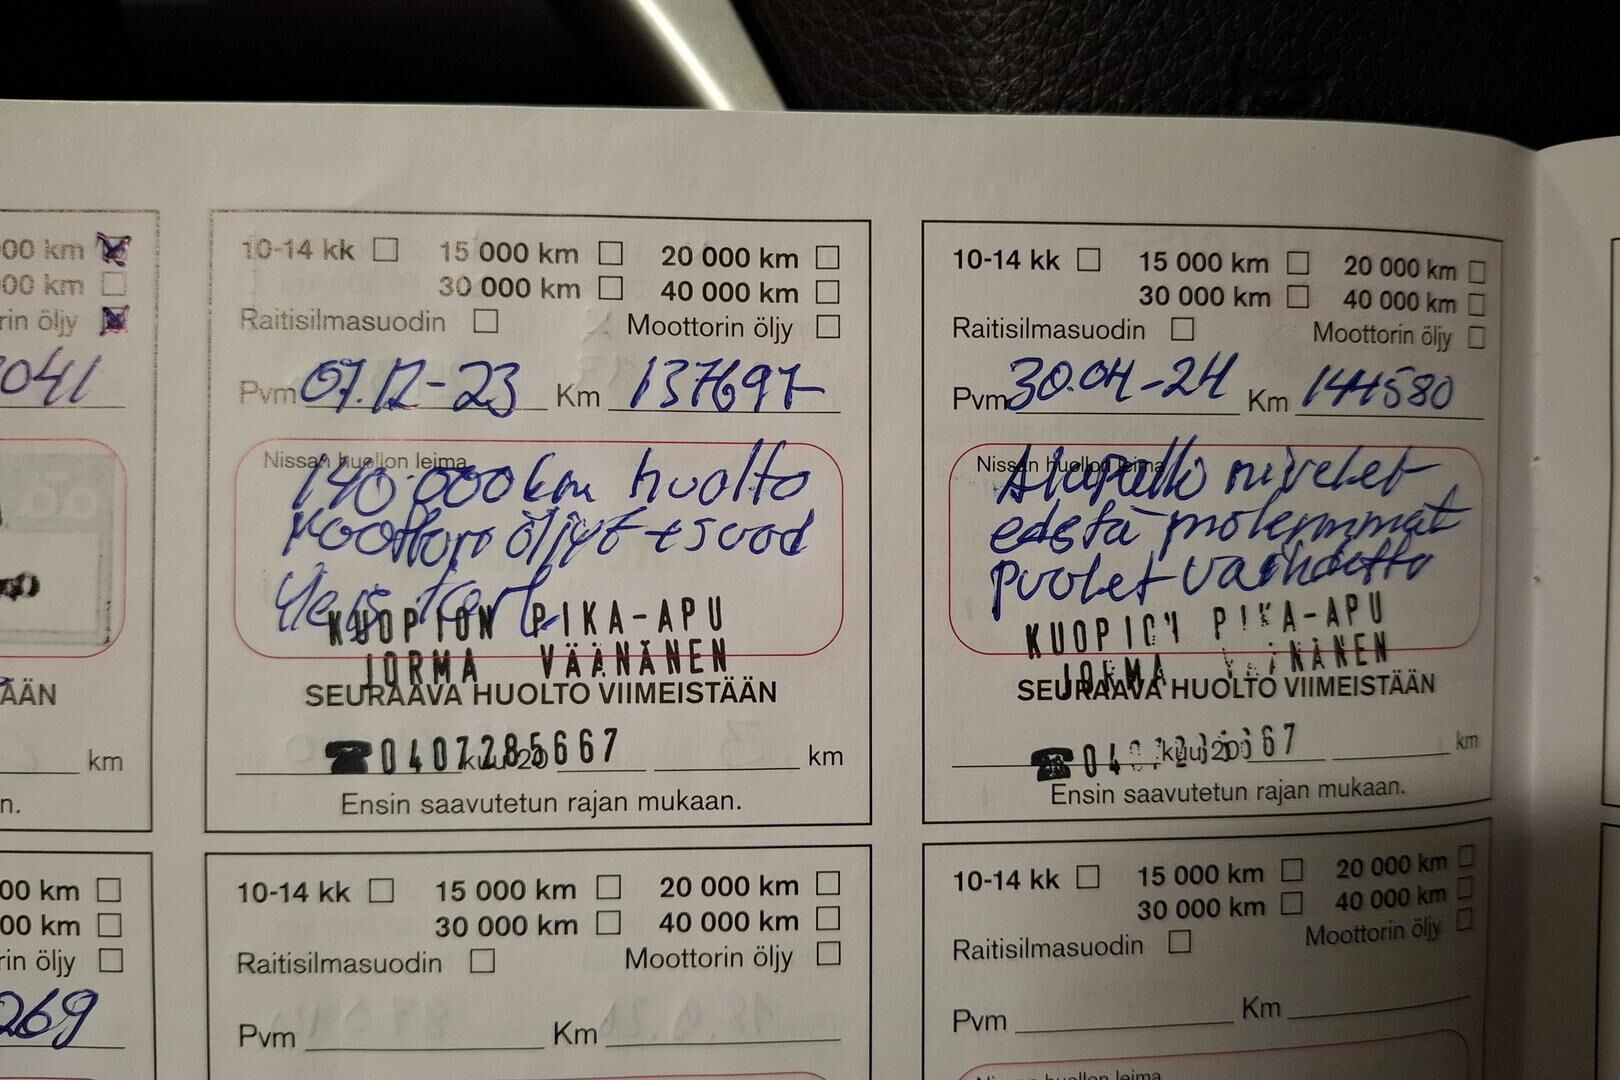 00 km
00 km
rin öljy
041
ÄÄN
km
n.
10-14 kk 15 000 km 20 000 km
30 000 km 40 000 km
Raitisilmasuodin Moottorin öljy
Pvm 07.12-23 Km 137697
Nissan huollon leima
140.000km huolto
Moottori öljyt + suod
Yleis tark
KUOPION PIKA-APU
JORMA VÄÄNÄNEN
SEURAAVA HUOLTO VIIMEISTÄÄN
0407285667
kuu 20 km
Ensin saavutetun rajan mukaan.
10-14 kk 15 000 km 20 000 km
30 000 km 40 000 km
Raitisilmasuodin Moottorin öljy
Pvm 30.04-24 Km 144580
Nissan huollon leima
Alapallo nivelet
edestä molemmat
puolet vaihdettu
KUOPION PIKA-APU
JORMA VÄÄNÄNEN
SEURAAVA HUOLTO VIIMEISTÄÄN
kuu 20 km
Ensin saavutetun rajan mukaan.
00 km
00 km
rin öljy
269
10-14 kk 15 000 km 20 000 km
30 000 km 40 000 km
Raitisilmasuodin Moottorin öljy
Pvm Km
10-14 kk 15 000 km 20 000 km
30 000 km 40 000 km
Raitisilmasuodin Moottorin öljy
Pvm Km
Nissan huollon leima